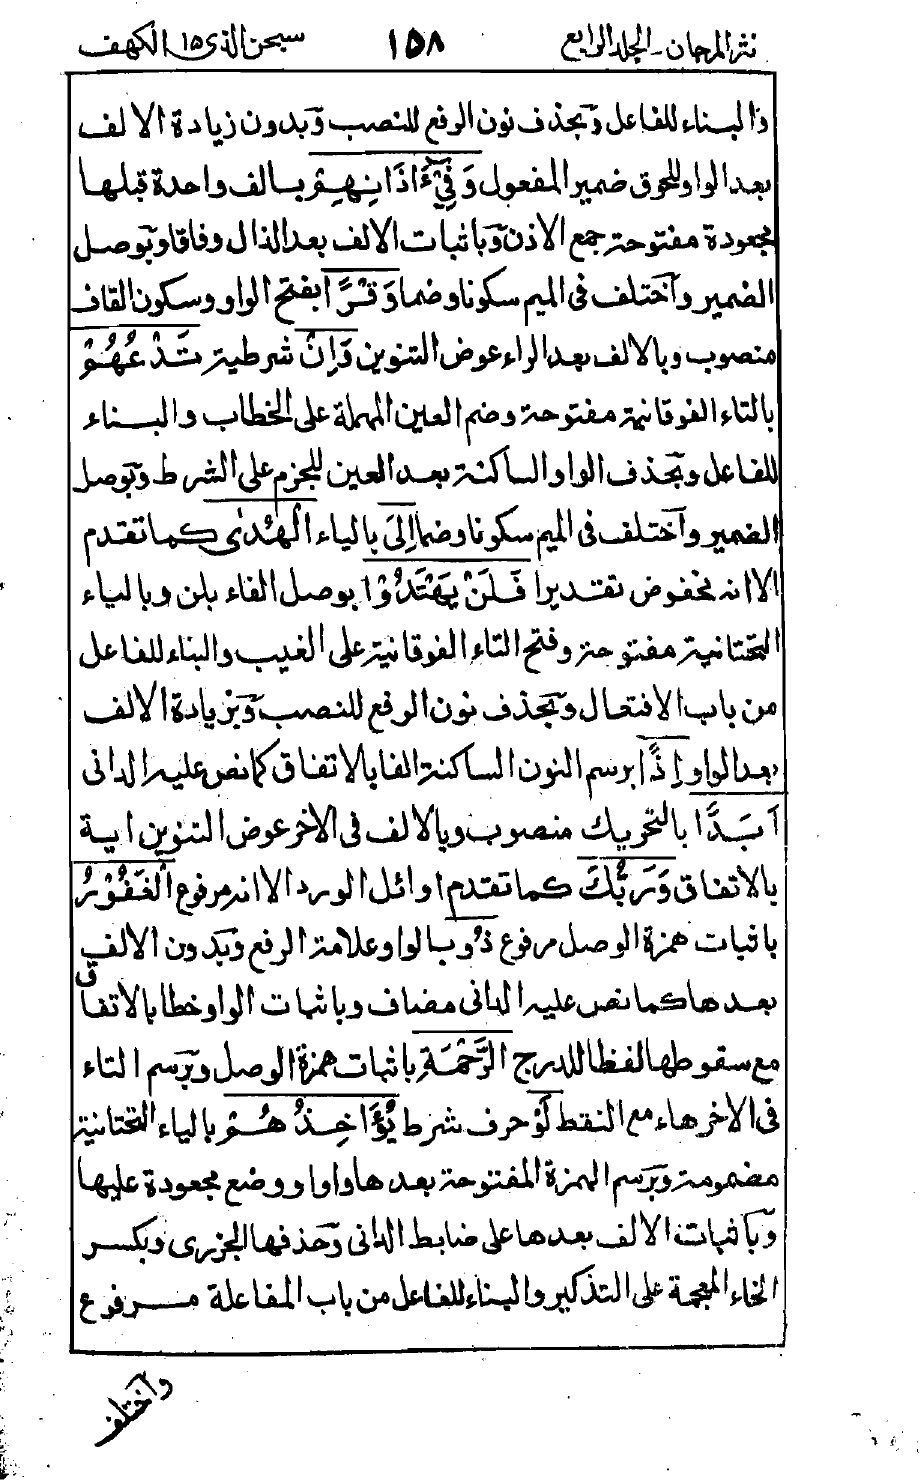 نثر المرجان ـ الجلد الرابع ١٥٨ سبحن الذى ١٥ الكهف
ذا لبناء للفاعل وَبحذف نون الرفع للنصب وَبدون زيادة الالف
بعد الواو للحوق ضمير المفعول وَفِىٓ ءَاذَانِهِمْ بالف واحدة قبلها
مجعودة مفتوحة جمع الاذن وَباثبات الالف بعد الذال وفاقا وَبوصل
الضمير وآختلف فى الميم سكونا وضما وَقْرًا بفتح الواو وسكون القاف
منصوب وبالالف بعد الراء عوض التنوين وَاِنْ شرطية تَدْعُهُمْ
بالتاء الفوقانية مفتوحة وضم العين المهملة على الخطاب والبناء
للفاعل وبحذف الواو الساكنة بعد العين للجزم على الشرط وبوصل
الضمير وآختلف فى الميم سكونا وضما اِلَى بالياء الْهُدٰى كما تقدم
الا انه مخفوض تقديرا فَلَنْ يَهْتَدُوْا بوصل الفاء بلن وبالياء
التحتانية مفتوحة وفتح التاء الفوقانية على الغيب والبناء للفاعل
من باب الافتعال وَبحذف نون الرفع للنصب وَبزيادة الالف
بعد الواو اِذًا برسم النون الساكنة الفا بالاتفاق كما نص عليه الدانى
اَبَدًا بالتحريك منصوب وبالالف فى الاخر عوض التنوين اية
بالاتفاق وَرَبُّكَ كما تقدم اوائل الورد الا انه مرفوع الْغَفُوْرُ
باثبات همزة الوصل مرفوع ذُو بالواو علامة الرفع وَبدون الالف
بعدها كما نص عليه الدانى مضاف وباثبات الواو خطا بالاتفاق
مع سقوطها لفظا للدرج الرَّحْمَةِ باثبات همزة الوصل وبرسم التاء
فى الاخر هاء مع النقط لَوْ حرف شرط يُؤَاخِذُهُمْ بالياء التحتانية
مضمومة وبرسم الهمزة المفتوحة بعدها واوا ووضع مجعودة عليها
وَباثبات الالف بعدها على ضابط الدانى وَحذفها الجزرى وبكسر
الخاء المعجمة على التذكير والبناء للفاعل من باب المفاعلة مرفوع
وآختلف